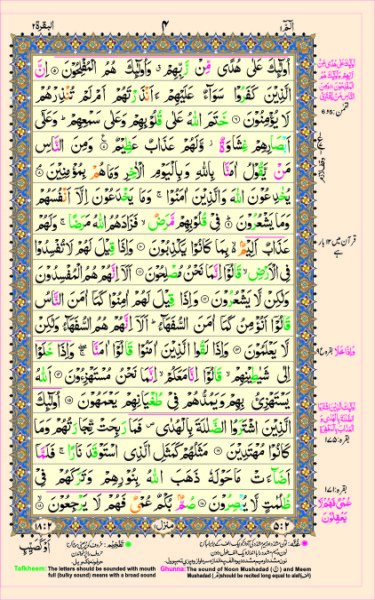 الٓمّٓ ١
٤
البقرة ٢
اُولٰٓئِكَ عَلٰى هُدًى مِّنْ رَّبِّهِمْ ۙ وَاُولٰٓئِكَ هُمُ الْمُفْلِحُوْنَ ۝ اِنَّ
الَّذِيْنَ كَفَرُوْا سَوَآءٌ عَلَيْهِمْ ءَاَنْذَرْتَهُمْ اَمْ لَمْ تُنْذِرْهُمْ
لَا يُؤْمِنُوْنَ ۝ خَتَمَ اللّٰهُ عَلٰى قُلُوْبِهِمْ وَعَلٰى سَمْعِهِمْ ؕ وَعَلٰٓى
اَبْصَارِهِمْ غِشَاوَةٌ ؗ وَّلَهُمْ عَذَابٌ عَظِيْمٌ ۝ وَمِنَ النَّاسِ
مَنْ يَّقُوْلُ اٰمَنَّا بِاللّٰهِ وَبِالْيَوْمِ الْاٰخِرِ وَمَا هُمْ بِمُؤْمِنِيْنَ ۝
يُخٰدِعُوْنَ اللّٰهَ وَالَّذِيْنَ اٰمَنُوْا ۚ وَمَا يَخْدَعُوْنَ اِلَّآ اَنْفُسَهُمْ
وَمَا يَشْعُرُوْنَ ۝ فِيْ قُلُوْبِهِمْ مَّرَضٌ ۙ فَزَادَهُمُ اللّٰهُ مَرَضًا ۚ وَلَهُمْ
عَذَابٌ اَلِيْمٌۢ ۙ بِمَا كَانُوْا يَكْذِبُوْنَ ۝ وَاِذَا قِيْلَ لَهُمْ لَا تُفْسِدُوْا
فِى الْاَرْضِ ۙ قَالُوْٓا اِنَّمَا نَحْنُ مُصْلِحُوْنَ ۝ اَلَآ اِنَّهُمْ هُمُ الْمُفْسِدُوْنَ
وَلٰكِنْ لَّا يَشْعُرُوْنَ ۝ وَاِذَا قِيْلَ لَهُمْ اٰمِنُوْا كَمَآ اٰمَنَ النَّاسُ
قَالُوْٓا اَنُؤْمِنُ كَمَآ اٰمَنَ السُّفَهَآءُ ؕ اَلَآ اِنَّهُمْ هُمُ السُّفَهَآءُ وَلٰكِنْ
لَّا يَعْلَمُوْنَ ۝ وَاِذَا لَقُوا الَّذِيْنَ اٰمَنُوْا قَالُوْٓا اٰمَنَّا ۖۚ وَاِذَا خَلَوْا
اِلٰى شَيٰطِيْنِهِمْ ۙ قَالُوْٓا اِنَّا مَعَكُمْ ۙ اِنَّمَا نَحْنُ مُسْتَهْزِءُوْنَ ۝ اَللّٰهُ
يَسْتَهْزِئُ بِهِمْ وَيَمُدُّهُمْ فِيْ طُغْيَانِهِمْ يَعْمَهُوْنَ ۝ اُولٰٓئِكَ
الَّذِيْنَ اشْتَرَوُا الضَّلٰلَةَ بِالْهُدٰى ۪ فَمَا رَبِحَتْ تِّجَارَتُهُمْ وَمَا
كَانُوْا مُهْتَدِيْنَ ۝ مَثَلُهُمْ كَمَثَلِ الَّذِى اسْتَوْقَدَ نَارًا ۚ فَلَمَّآ
اَضَآءَتْ مَا حَوْلَهٗ ذَهَبَ اللّٰهُ بِنُوْرِهِمْ وَتَرَكَهُمْ فِيْ
ظُلُمٰتٍ لَّا يُبْصِرُوْنَ ۝ صُمٌّۢ بُكْمٌ عُمْيٌ فَهُمْ لَا يَرْجِعُوْنَ ۝
١٨:٢
منزل
٥:٢
اَوْ كَصَيِّبٍ
Talkheem: The letters should be sounded with mouth
full (bulky sound) means with a broad sound
Ghunna: The sound of Noon Mushadad (نّ) and Meem
Mushadad (مّ) should be recited long equal to alef